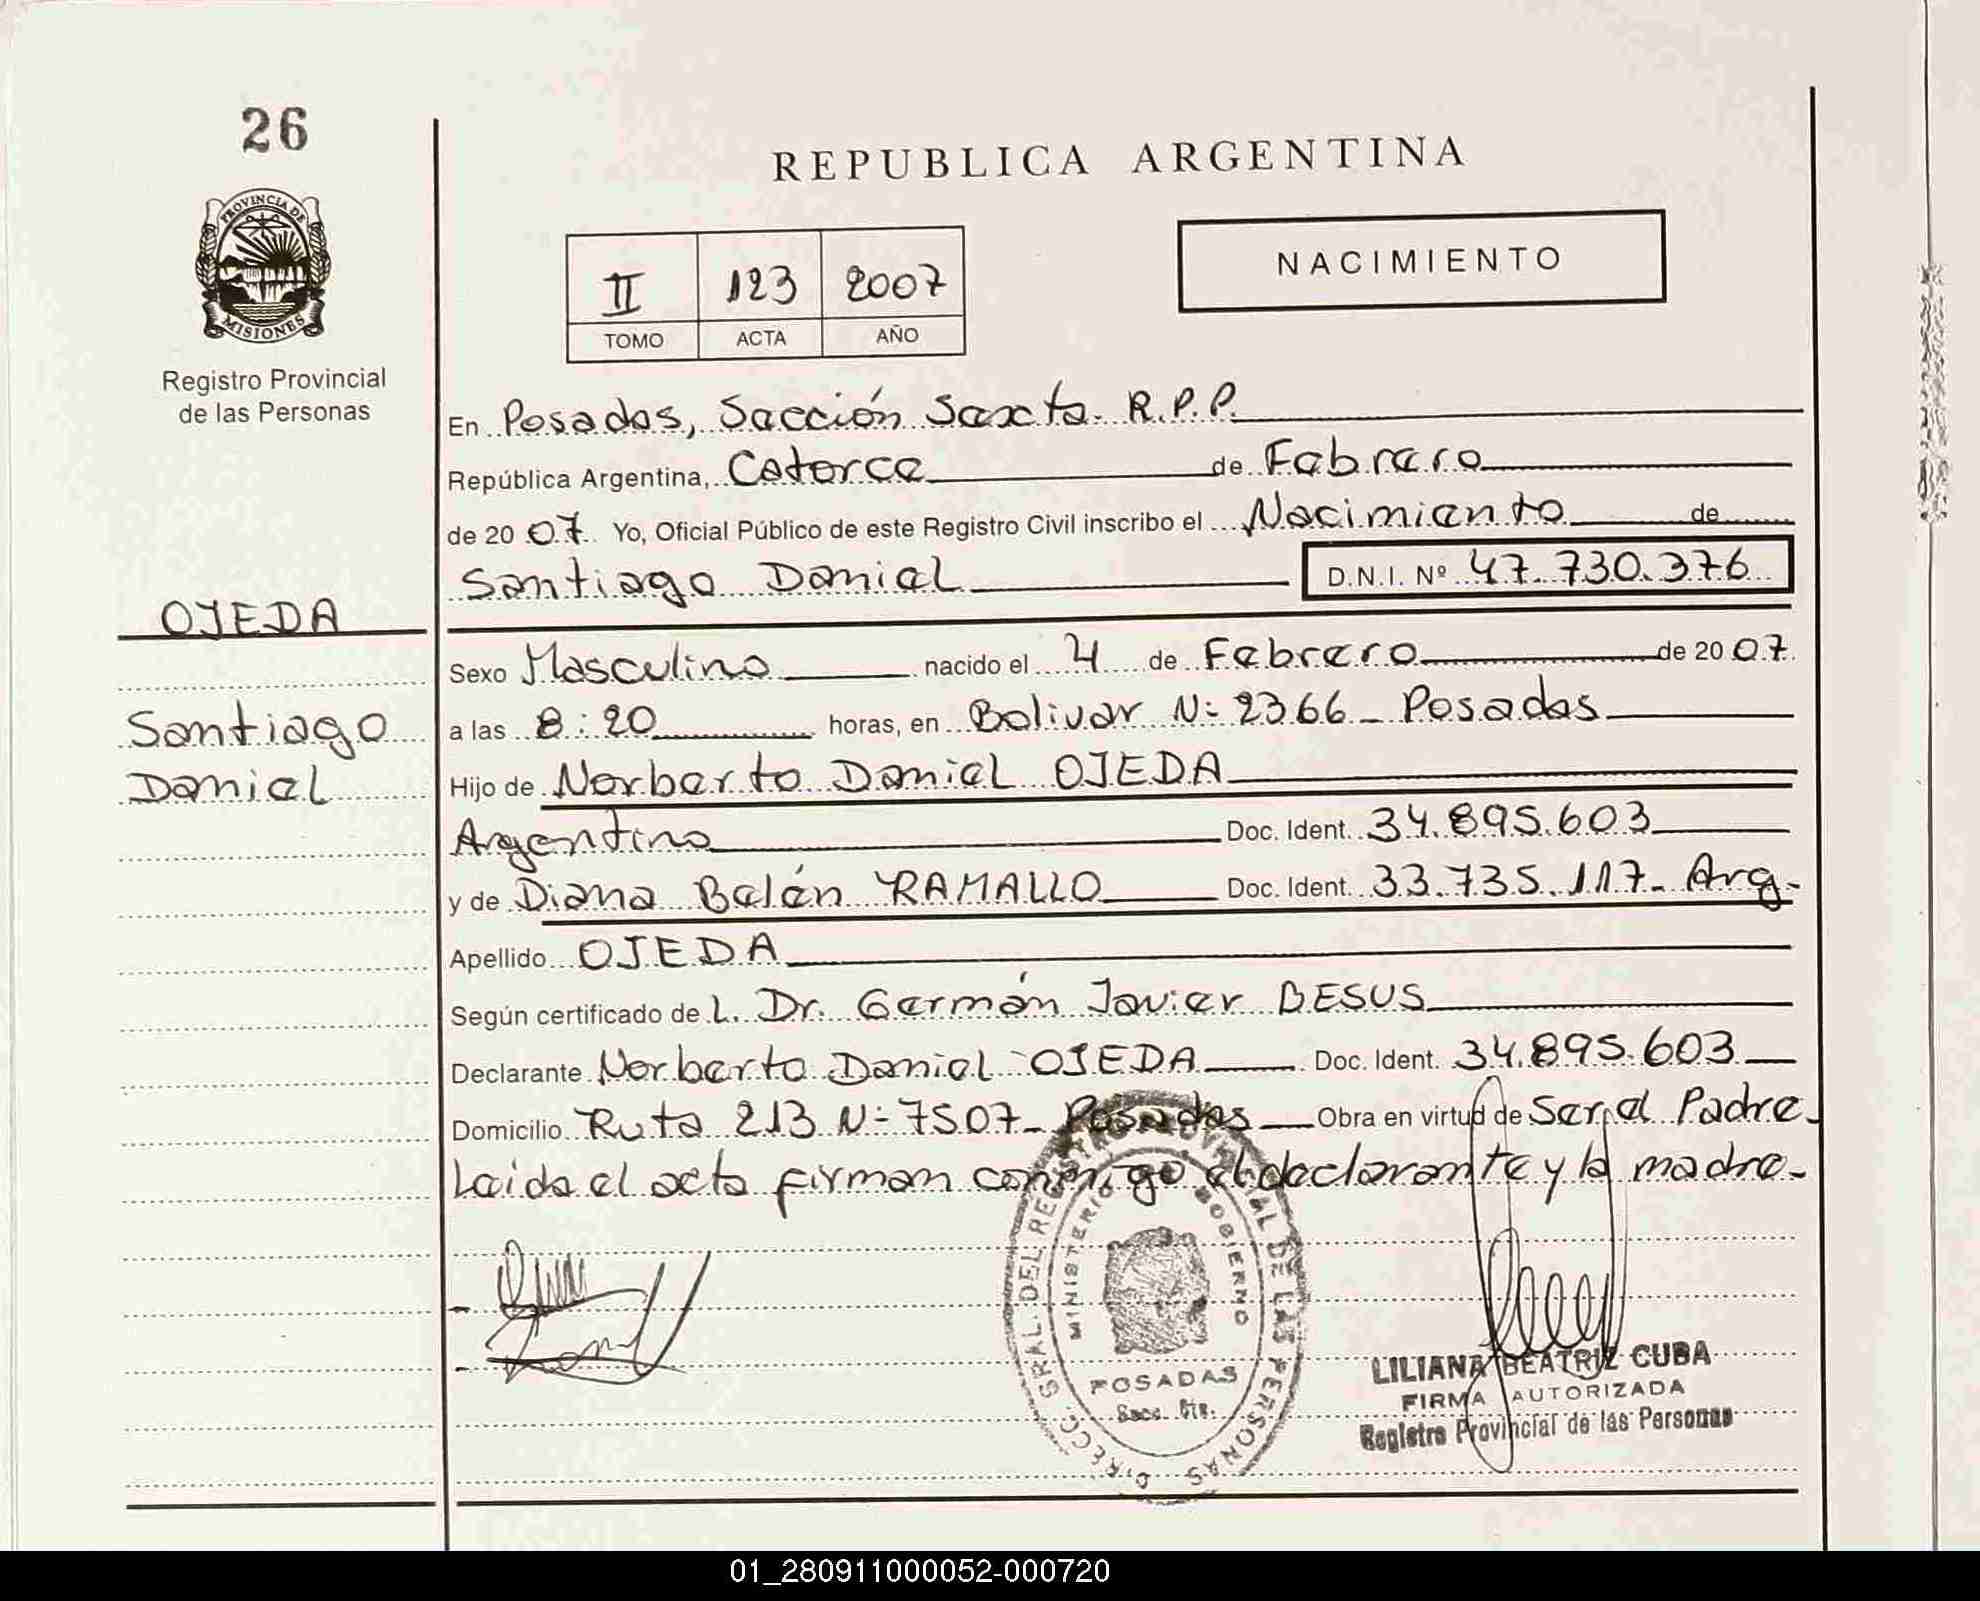 26
PROVINCIA DE
MISIONES
Registro Provincial
de las Personas
OJEDA
Santiago
Daniel
REPUBLICA ARGENTINA
II 123 2007
TOMO ACTA AÑO
NACIMIENTO
En Posadas, Sección Sexta R.P.P.
República Argentina, Catorce de Febrero
de 20 07 Yo, Oficial Público de este Registro Civil inscribo el Nacimiento de
Santiago Daniel D.N.I. Nº 47.730.376
Sexo Masculino nacido el 4 de Febrero de 20 07
a las 8:20 horas, en Bolivar Nº 2366 - Posadas
Hijo de Norberto Daniel OJEDA
Argentino Doc. Ident. 34.895.603
y de Diana Belén RAMALLO Doc. Ident. 33.735.117- Arg-
Apellido OJEDA
Según certificado de L. Dr. Germán Javier BESUS
Declarante Norberto Daniel OJEDA Doc. Ident. 34.895.603
Domicilio Ruta 213 Nº 7507- Posadas Obra en virtud de Ser el Padre-
Leida el acta firman conmigo el declarante y la madre-
DIRECC. GRAL. DEL REGISTRO PROVINCIAL DE LAS PERSONAS
MINISTERIO GOBIERNO
POSADAS
LILIANA BEATRIZ CUBA
FIRMA AUTORIZADA
Registro Provincial de las Personas
01_280911000052-000720